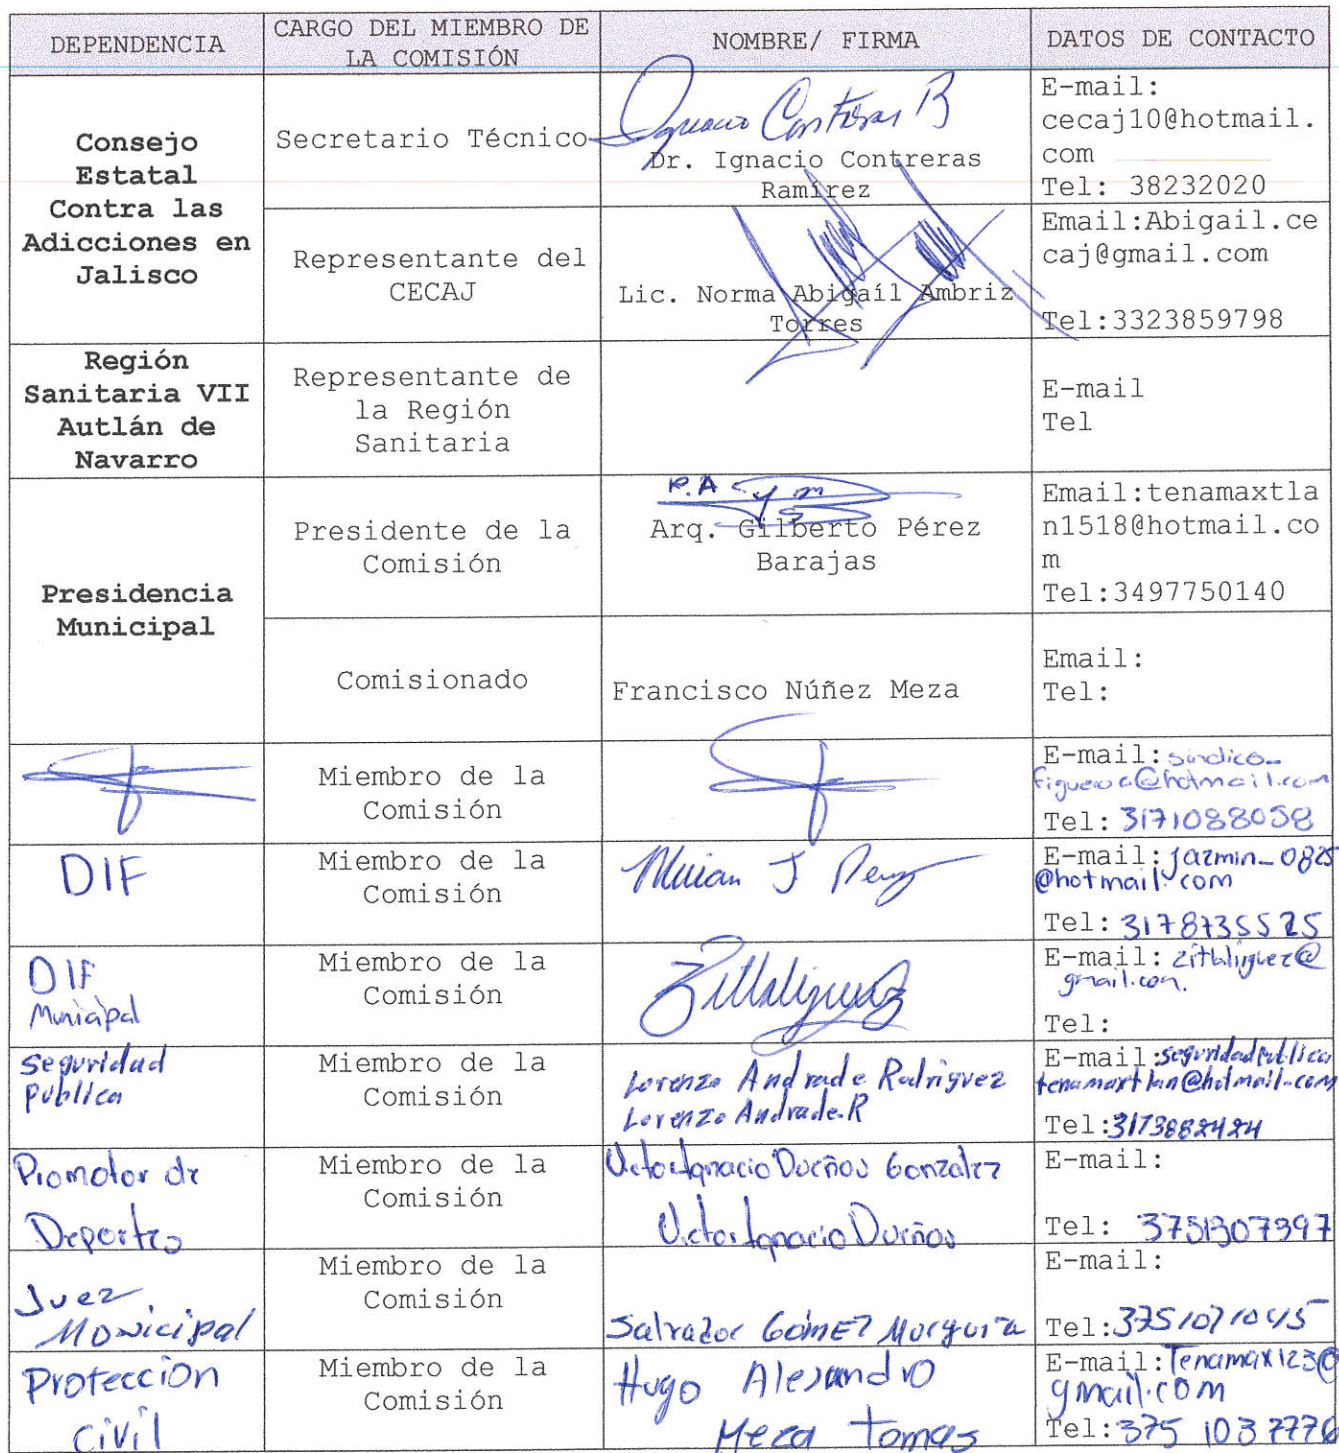 DEPENDENCIA
CARGO DEL MIEMBRO DE
LA COMISIÓN
NOMBRE/ FIRMA
DATOS DE CONTACTO
Consejo
Estatal
Contra las
Adicciones en
Jalisco
Secretario Técnico
Ignacio Contreras R
Dr. Ignacio Contreras
Ramírez
E-mail:
cecaj10@hotmail.
com
Tel: 38232020
Representante del
CECAJ
Lic. Norma Abigaíl Ambriz
Torres
Email:Abigail.ce
caj@gmail.com
Tel:3323859798
Región
Sanitaria VII
Autlán de
Navarro
Representante de
la Región
Sanitaria
E-mail
Tel
Presidencia
Municipal
Presidente de la
Comisión
P.A
Arq. Gilberto Pérez
Barajas
Email:tenamaxtla
n1518@hotmail.co
m
Tel:3497750140
Comisionado
Francisco Núñez Meza
Email:
Tel:
Miembro de la
Comisión
E-mail: sindico_
figueroa@hotmail.com
Tel: 3171088058
DIF
Miembro de la
Comisión
Mirian J Perez
E-mail: jazmin_0825
@hotmail.com
Tel: 3178735525
DIF
Municipal
Miembro de la
Comisión
E-mail:
gmail.com.
Tel:
Seguridad
Publica
Miembro de la
Comisión
Lorenzo Andrade Rodriguez
Lorenzo Andrade.R
E-mail:seguridadpublica
tenamaxtlan@hotmail.com
Tel:3173882424
Promotor de
Deportes
Miembro de la
Comisión
Victor Ignacio Dueñas Gonzalez
Victor Ignacio Dueñas
E-mail:
Tel: 3751307397
Juez
Municipal
Miembro de la
Comisión
Salvador Gómez Murguia
E-mail:
Tel:3751071045
Protección
Civil
Miembro de la
Comisión
Hugo Alejandro
Meza Tomas
E-mail:Tenamax123@
gmail.com
Tel:375 1037776